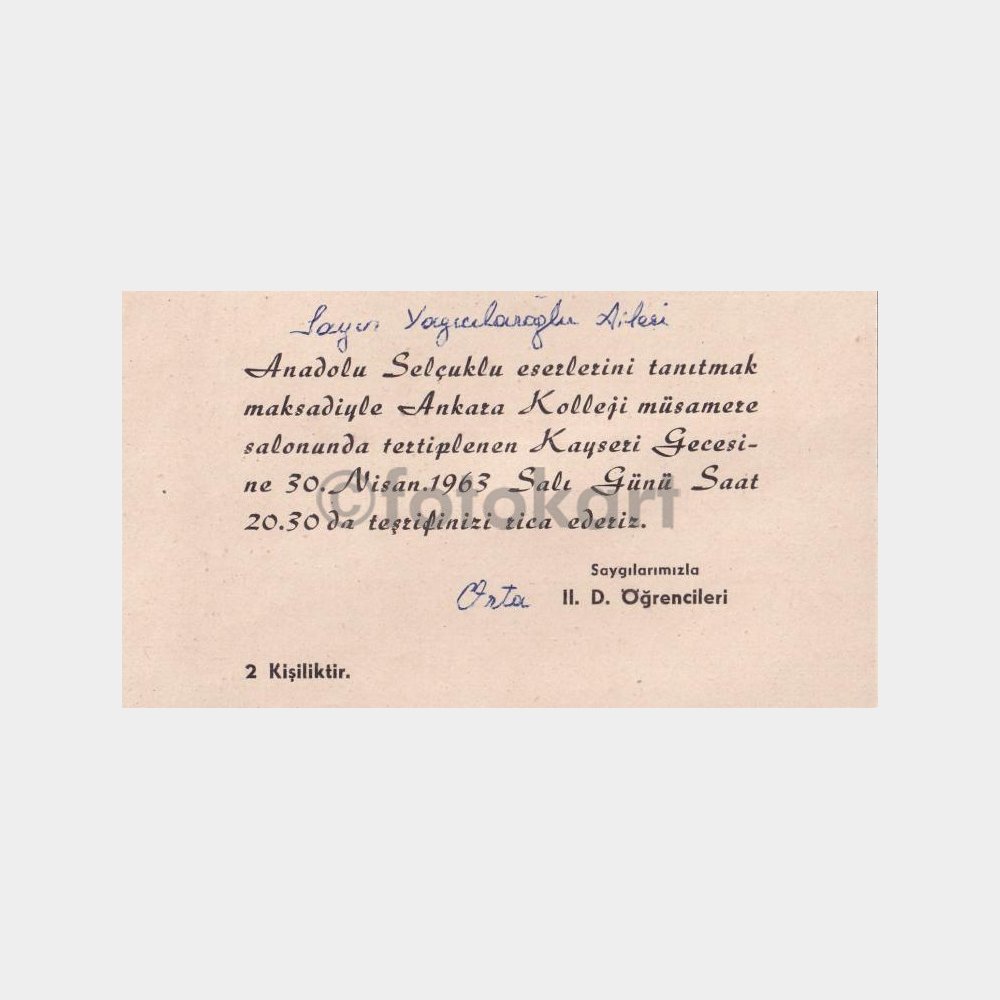 Sayın Yağcılaroğlu Ailesi
Anadolu Selçuklu eserlerini tanıtmak
maksadiyle Ankara Kolleji müsamere
salonunda tertiplenen Kayseri Gecesi-
ne 30.Nisan.1963 Salı Günü Saat
20.30 da teşrifinizi rica ederiz.
©fotokart
Saygılarımızla
Orta II. D. Öğrencileri
2 Kişiliktir.